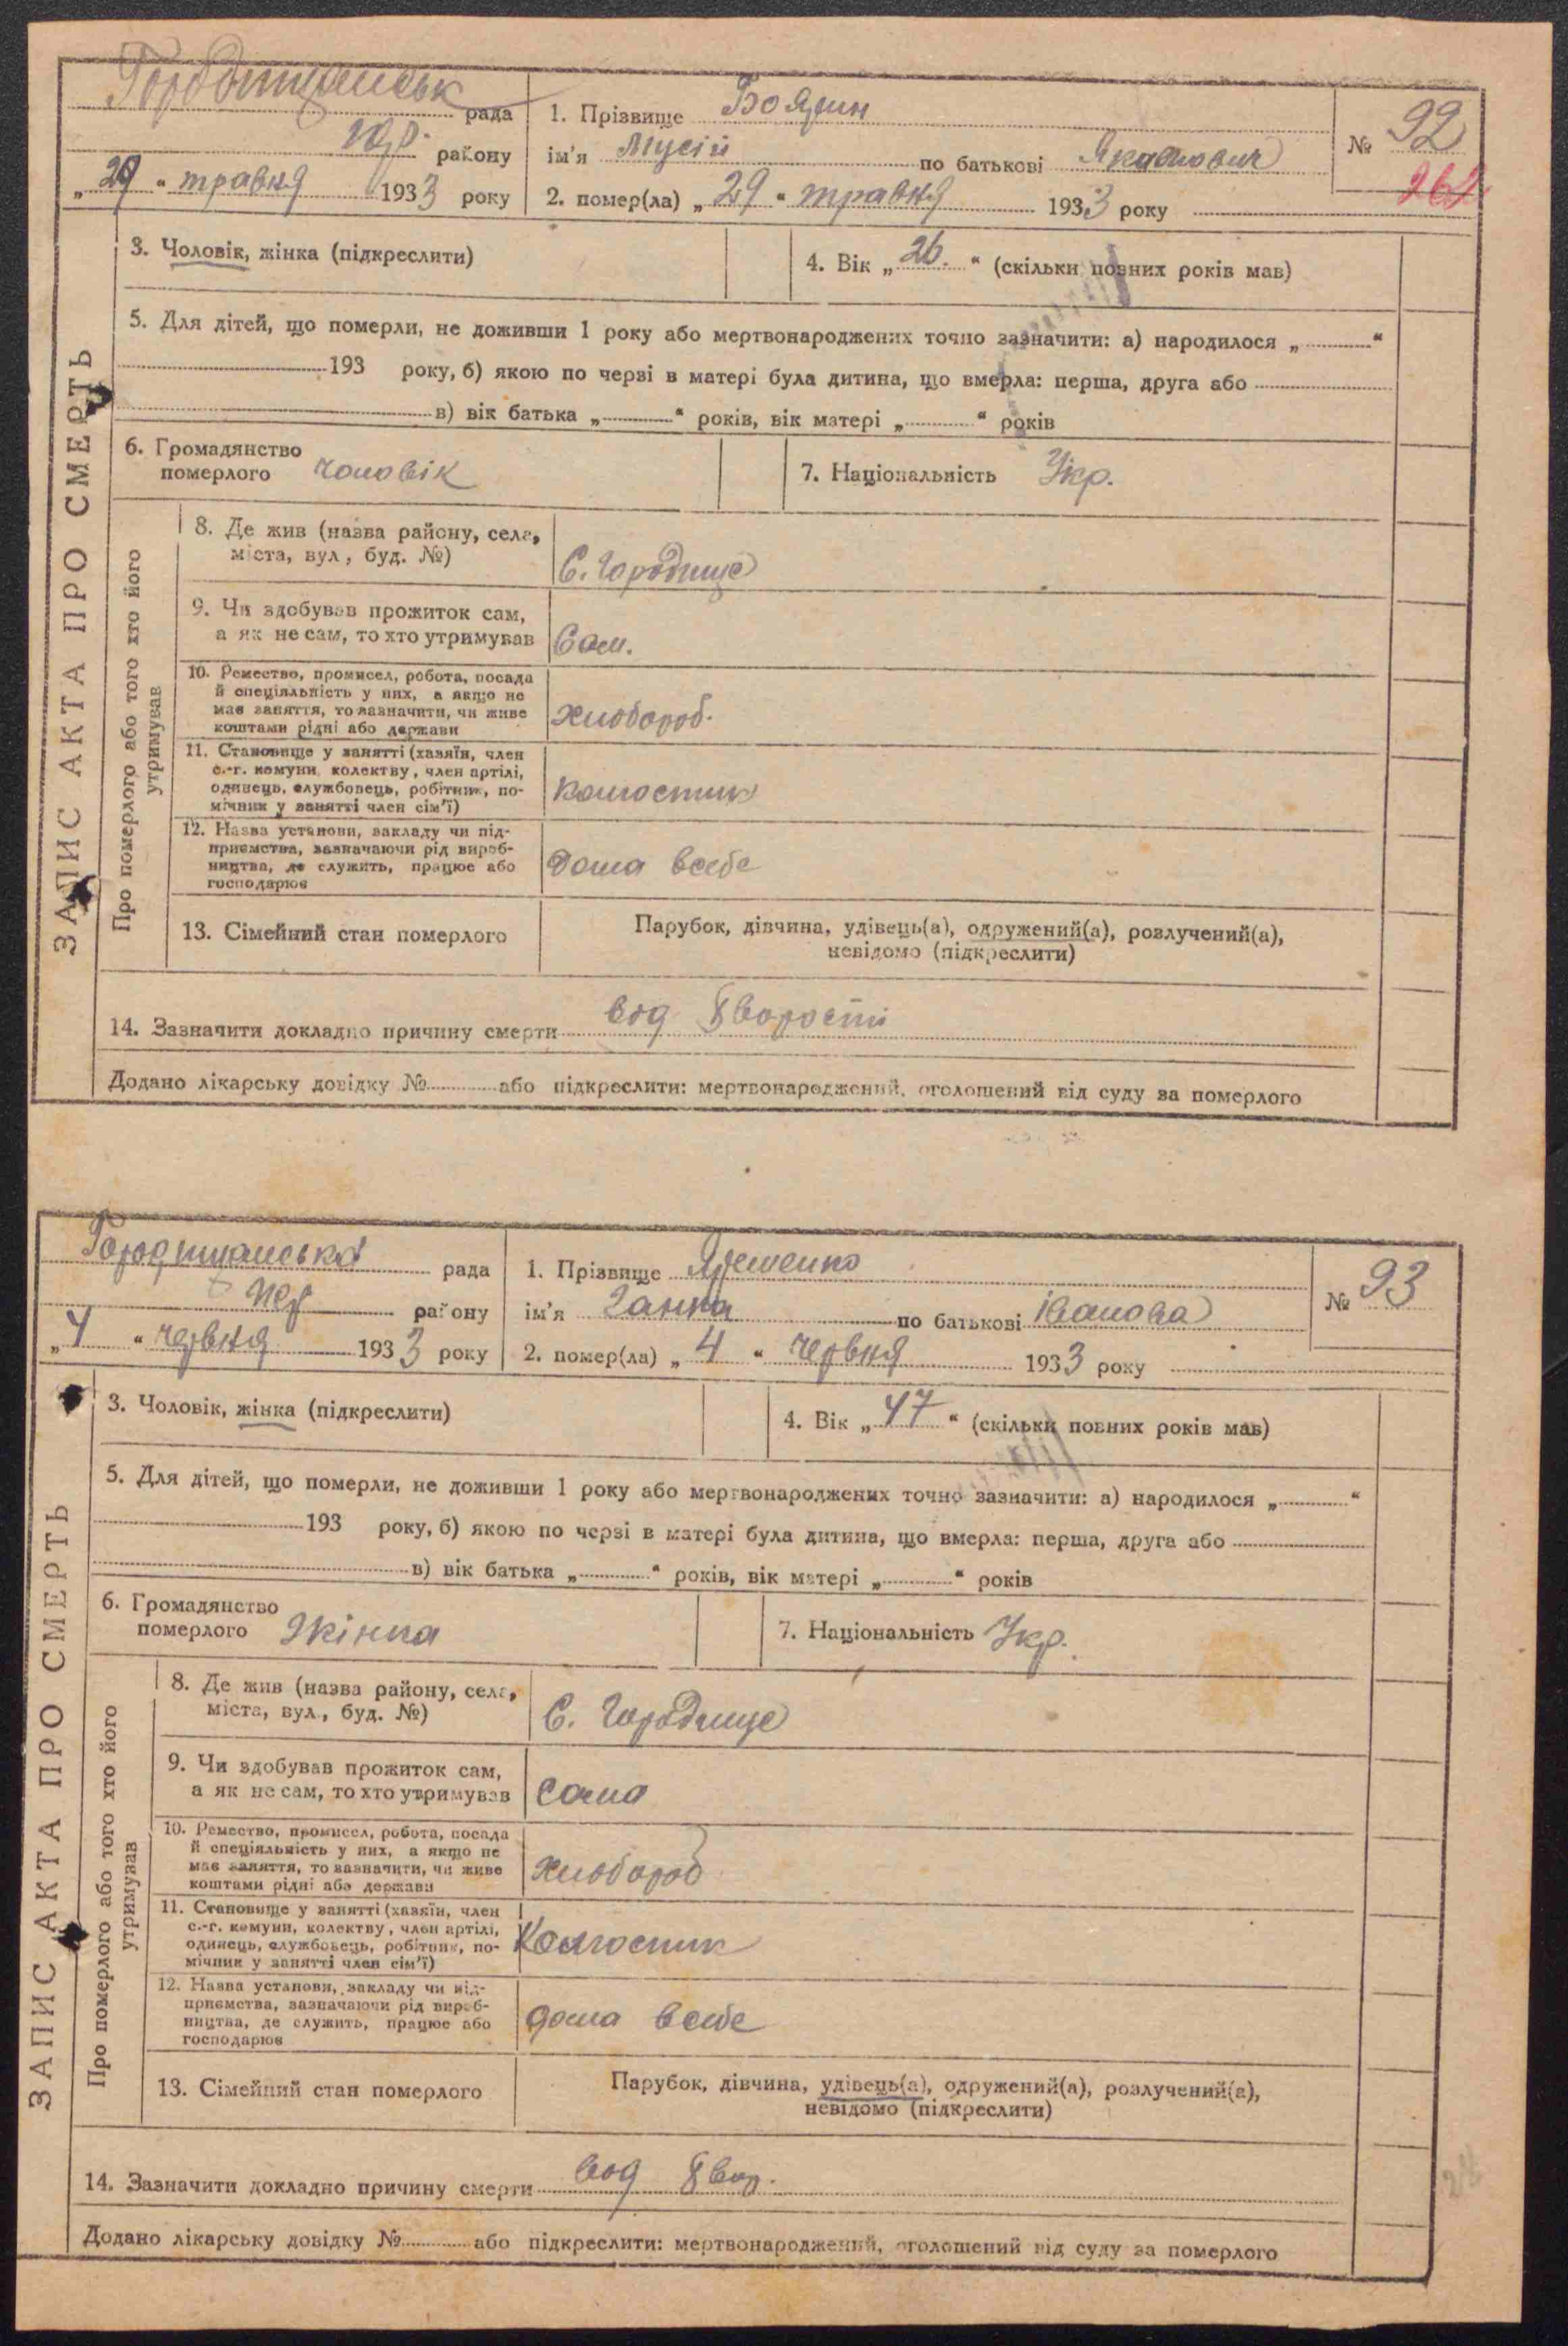 ЗАПИС АКТА ПРО СМЕРТЬ
Городищенськ рада
району
„29“ травня 1933 року
1. Прізвище Боярин
ім'я Мусій по батькові Якимович
2. помер(ла) „29“ травня 1933 року
№ 92
262
3. Чоловік, жінка (підкреслити)
4. Вік „26.“ (скільки повних років мав)
5. Для дітей, що померли, не доживши 1 року або мертвонароджених точно зазначити: а) народилося „ “
193 року, б) якою по черзі в матері була дитина, що вмерла: перша, друга або
в) вік батька „ “ років, вік матері „ “ років
6. Громадянство
померлого чоловік
7. Національність Укр.
Про померлого або того хто його
утримував
8. Де жив (назва району, села,
міста, вул., буд. №)
С. Городище
9. Чи здобував прожиток сам,
а як не сам, то хто утримував
Сам.
10. Ремество, промисел, робота, посада
й спеціяльність у них, а якщо не
має заняття, то зазначити, чи живе
коштами рідні або держави
хлібороб.
11. Становище у занятті (хазяїн, член
с.-г. комуни, колектву, член артілі,
одинець, службовець, робітник, по-
мічник у занятті член сім'ї)
Колгоспник
12. Назва установи, закладу чи під-
приємства, зазначаючи рід вироб-
ництва, де служить, працює або
господарює
дома в себе
13. Сімейний стан померлого
Парубок, дівчина, удівець(а), одружений(а), розлучений(а),
невідомо (підкреслити)
14. Зазначити докладно причину смерти вод хворости
Додано лікарську довідку № або підкреслити: мертвонароджений, оголошений від суду за померлого
ЗАПИС АКТА ПРО СМЕРТЬ
Городищанська рада
району
„4“ червня 1933 року
1. Прізвище Яременко
ім'я Ганна по батькові Іванова
2. помер(ла) „4“ червня 1933 року
№ 93
3. Чоловік, жінка (підкреслити)
4. Вік „47“ (скільки повних років мав)
5. Для дітей, що померли, не доживши 1 року або мертвонароджених точно зазначити: а) народилося „ “
193 року, б) якою по черзі в матері була дитина, що вмерла: перша, друга або
в) вік батька „ “ років, вік матері „ “ років
6. Громадянство
померлого Жінка
7. Національність Укр.
Про померлого або того хто його
утримував
8. Де жив (назва району, села,
міста, вул., буд. №)
С. Городище
9. Чи здобував прожиток сам,
а як не сам, то хто утримував
сама
10. Ремество, промисел, робота, посада
й спеціяльність у них, а якщо не
має заняття, то зазначити, чи живе
коштами рідні або держави
хлібороб
11. Становище у занятті (хазяїн, член
с.-г. комуни, колектву, член артілі,
одинець, службовець, робітник, по-
мічник у занятті член сім'ї)
Колгоспник
12. Назва установи, закладу чи під-
приємства, зазначаючи рід вироб-
ництва, де служить, працює або
господарює
дома в себе
13. Сімейний стан померлого
Парубок, дівчина, удівець(а), одружений(а), розлучений(а),
невідомо (підкреслити)
14. Зазначити докладно причину смерти вод хвор.
Додано лікарську довідку № або підкреслити: мертвонароджений, оголошений від суду за померлого